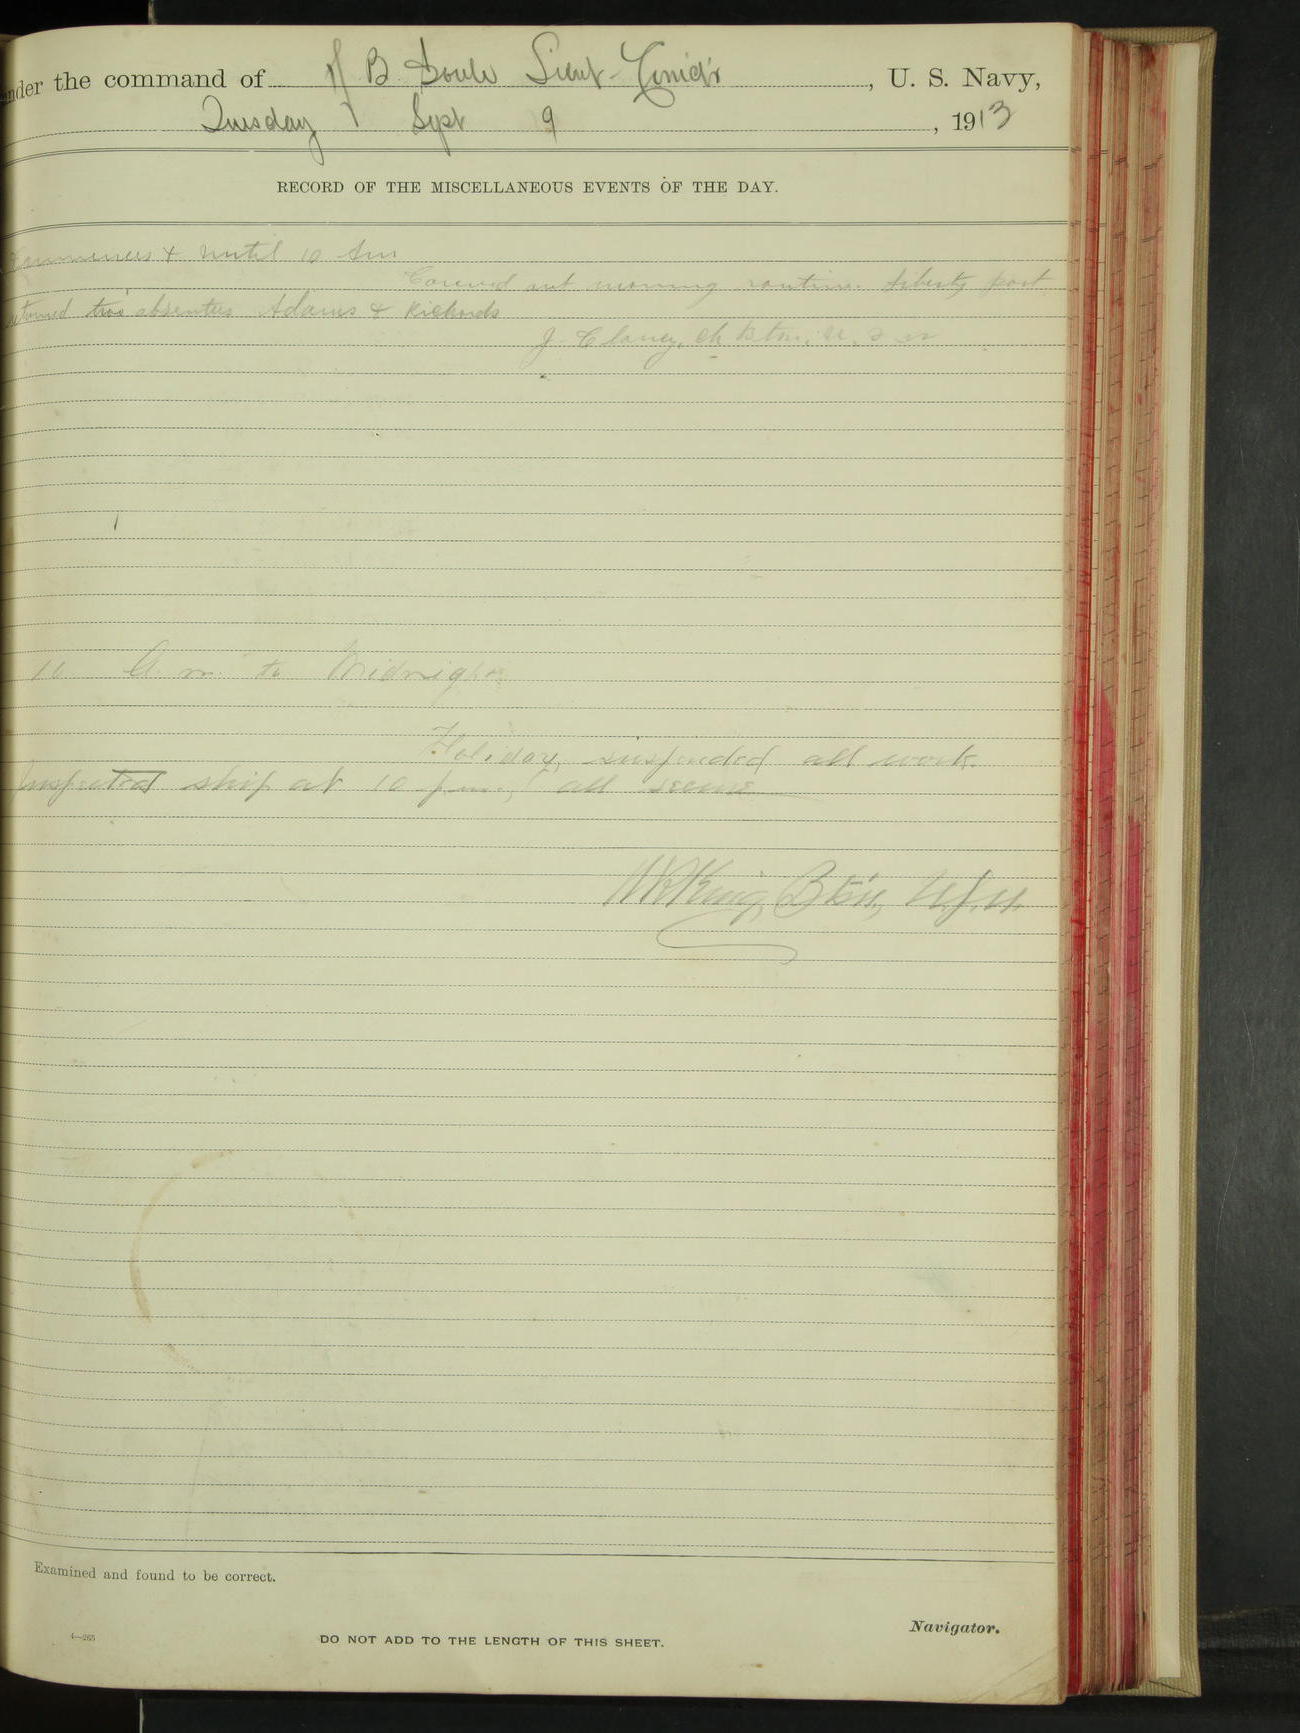 under the command of B Soule Lieut-Comd'r, U. S. Navy,
Tuesday Sept 9, 1913
RECORD OF THE MISCELLANEOUS EVENTS OF THE DAY.
Commences & until 10 Am
Carried out morning routine. Liberty part
returned two absentees Adams & Richards
J. Clancy, Ch Btsn, U. S. N
10 A. m. to Midnight
Holiday, suspended all work.
Inspected ship at 10 p.m., all secure
King, Btsn, U.S.N.
Examined and found to be correct.
Navigator.
4—265
DO NOT ADD TO THE LENGTH OF THIS SHEET.